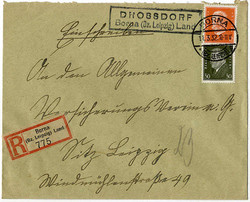 Einschreiben
DROSSDORF
Borna (Bz. Leipzig) Land
BORNA
An den Allgemeinen
Versicherungs Verein a. G.
Borna
(Bz. Leipzig) Land
775
Sitz Leipzig
Windmühlenstraße 49